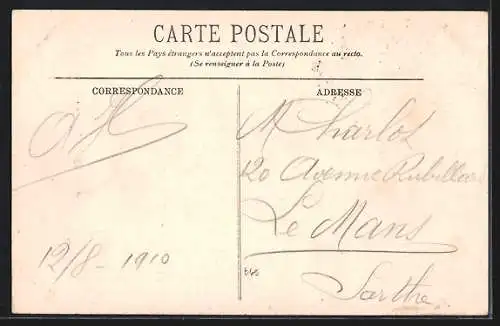 CARTE POSTALE
Tous les Pays étrangers n'acceptent pas la Correspondance au recto.
(Se renseigner à la Poste)
CORRESPONDANCE
ADRESSE
A H
12/8 - 1910
M Charlos
120 Avenue Rubillard
Le Mans
Sarthe